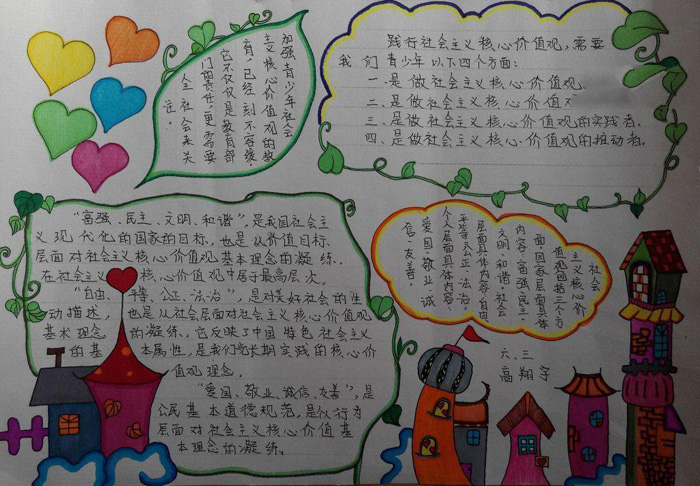 加强青少年社会
主义核心价值观的教
育，已经刻不容缓。
它不仅仅是教育部
门的责任，更需要
全社会来关
注。
践行社会主义核心价值观，需要
我们青少年以下四个方面：
一.是做社会主义核心价值观
二.是做社会主义核心价值
是做社会主义核心价值观的实践者.
四.是做社会主义核心价值观的推动者.
“富强、民主、文明、和谐”，是我国社会主
义现代化的国家的目标，也是从价值目标
层面对社会主义核心价值观基本理念的凝练.
在社会主义核心价值观中居于最高层次。
“自由、平等、公正、法治”，是对美好社会的生
动描述，也是从社会层面对社会主义核心价值观
基本理念的凝练。它反映了中国特色社会主义
的基本属性，是我们党长期实践的核心价
值观理念。
“爱国、敬业、诚信、友善”，是
公民基本道德规范，是从行为
层面对社会主义核心价值基
本理念的凝练。
社会
主义核心价
值观包括三个方
面：国家层面具体
内容：富强、民主、
文明、和谐；社会
层面具体内容：自由、
平等、公正、法治；
个人层面具体内容：
爱国、敬业、诚
信、友善。
六、三
高翔宇